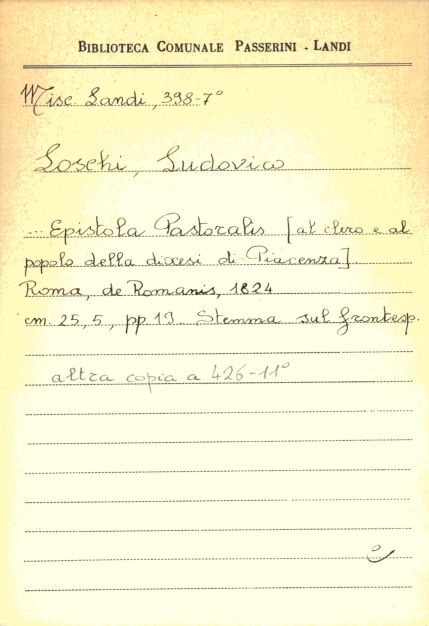 BIBLIOTECA COMUNALE PASSERINI - LANDI
Misc. Landi, 398-7°
Loschi, Ludovico
... Epistola Pastoralis [al clero e al
popolo della diocesi di Piacenza].
Roma, de Romanis, 1824
cm. 25,5, pp. 19 Stemma sul frontesp.
altra copia a 426-11°